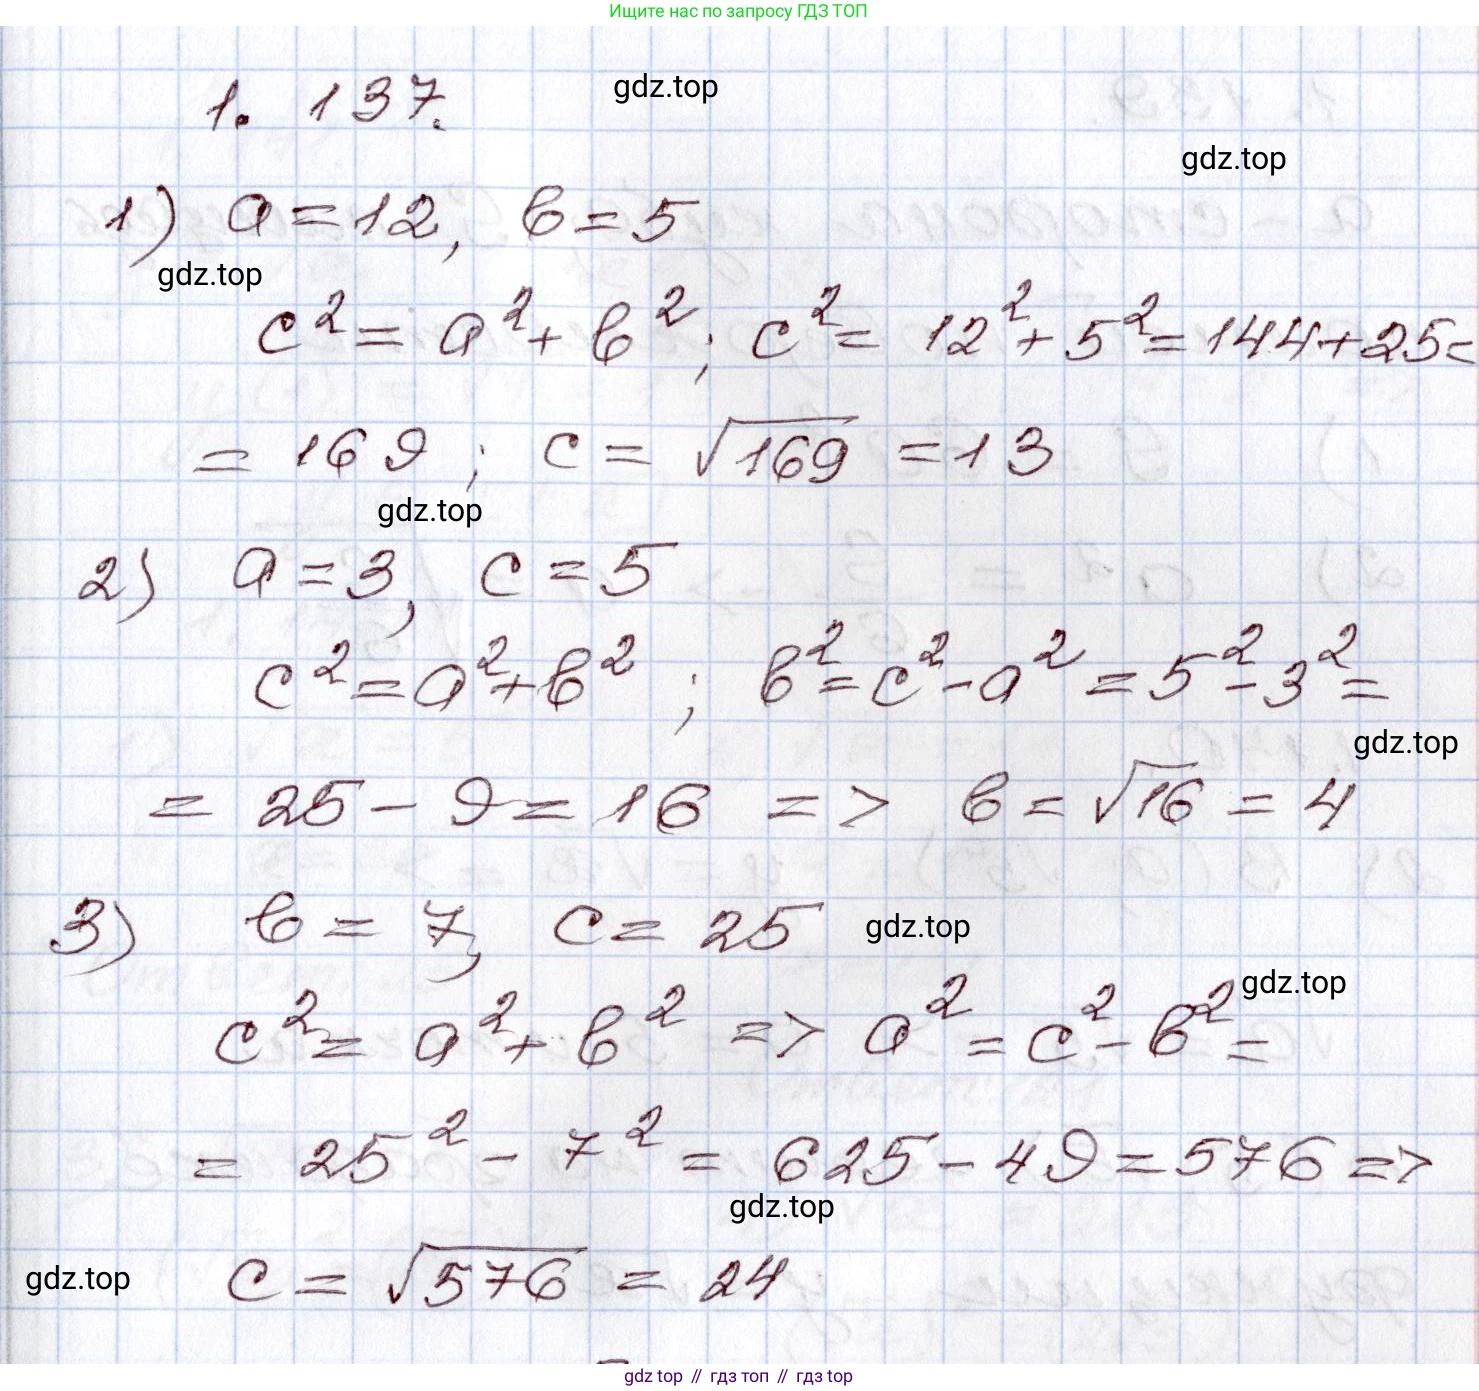 Ищите нас по запросу ГДЗ ТОП
1. 137.
gdz.top
gdz.top
1) a = 12, b = 5
gdz.top
c² = a² + b² ; c² = 12² + 5² = 144 + 25 =
= 169 ; c = √169 = 13
gdz.top
2) a = 3, c = 5
c² = a² + b² ; b² = c² - a² = 5² - 3² =
gdz.top
= 25 - 9 = 16 => b = √16 = 4
3) b = 7, c = 25
gdz.top
gdz.top
c² = a² + b² => a² = c² - b² =
= 25² - 7² = 625 - 49 = 576 =>
gdz.top
gdz.top
c = √576 = 24
gdz top // гдз топ // гдз top